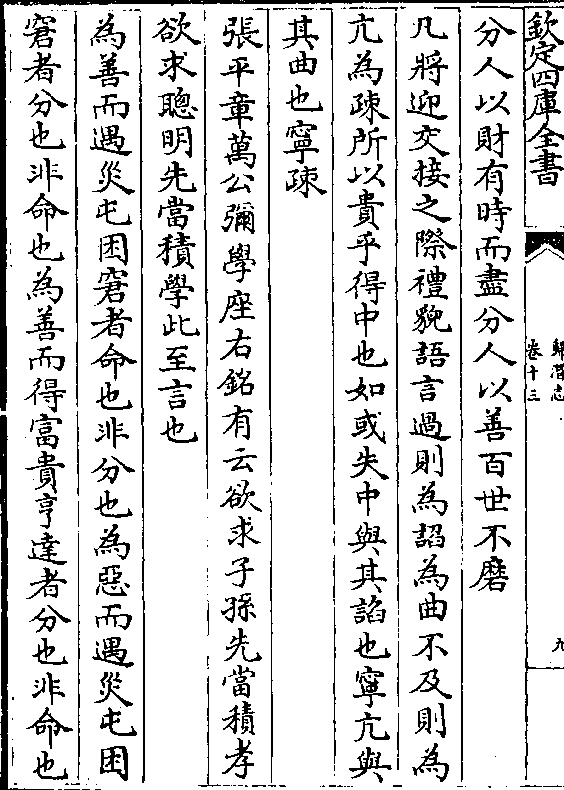 欽定四庫全書
歸潛志
卷十三
九
分人以財有時而盡分人以善百世不磨
凡將迎交接之際禮貌語言過則為諂為曲不及則為
亢為疎所以貴乎得中也如或失中與其諂也寧亢與
其曲也寧疎
張平章萬公彌學座右銘有云欲求子孫先當積孝
欲求聰明先當積學此至言也
為善而遇災屯困窘者命也非分也為惡而遇災屯困
窘者分也非命也為善而得富貴亨達者分也非命也